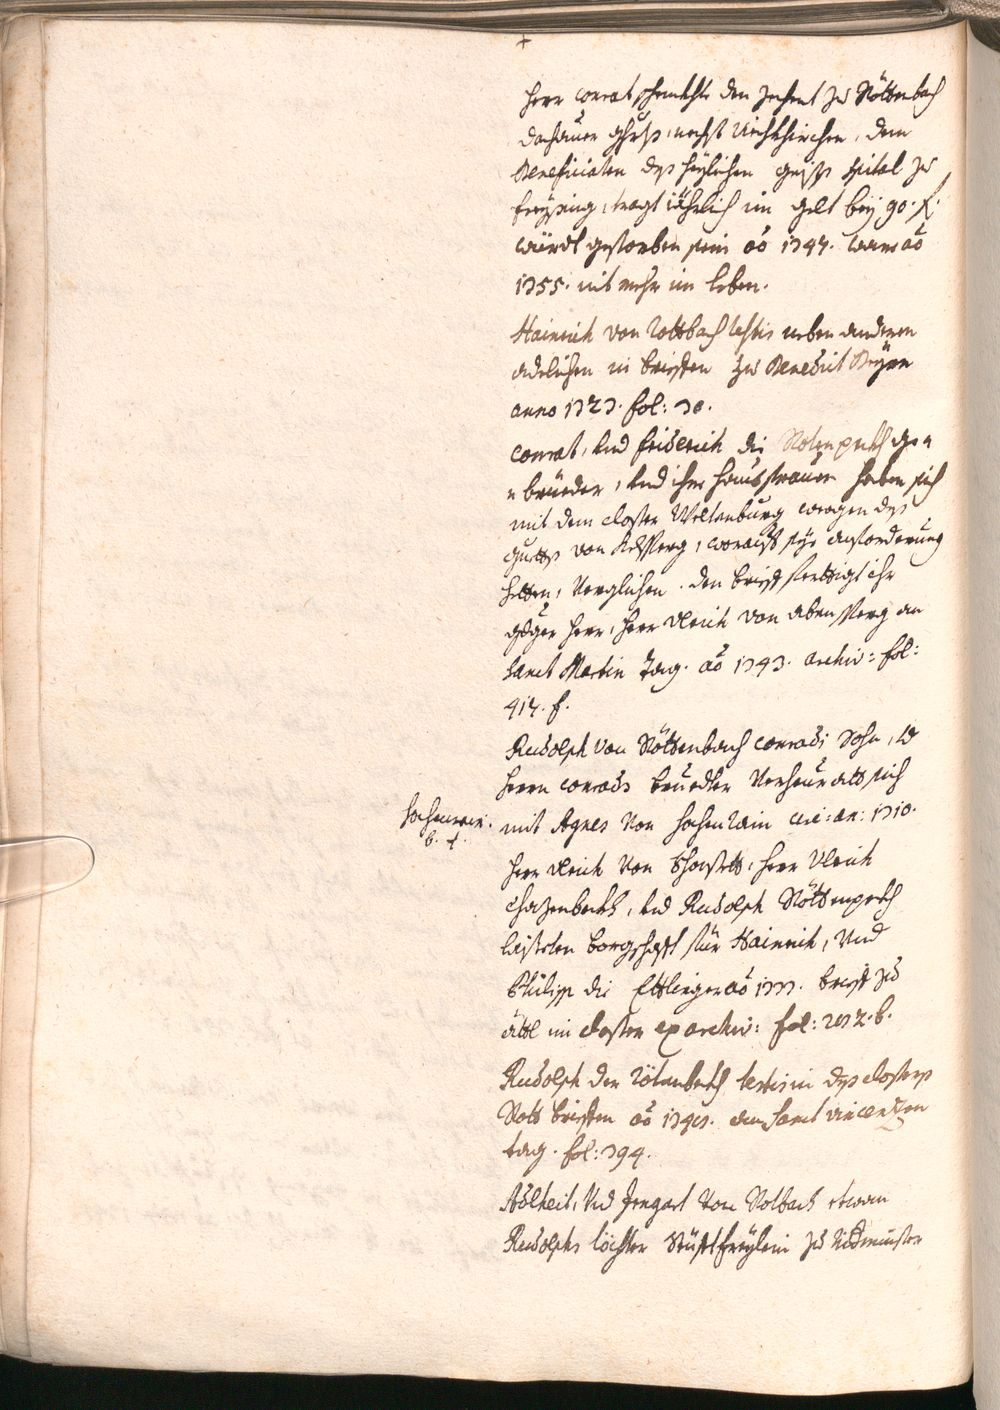 +
Herr Conrat schenckhte den Zechent zu Röttenbach
Dachauer ghrts, nechst Viechkhirchen, dem
Beneficiaten des heylichen geists spital zu
freysing, tragt iährlich im gelt bey 90. f.
würdt gestorben sein aō 1347. ware aō
1355. nit mehr im leben.
Hainrich von Rottbach testis neben anderen
adelichen in briefen zu Benedict Beyrn
anno 1323. fol: 30.
Conrat, Und friderich die Rotenpeckh
brüeder, Und ihre hausfrauen haben sich
mit dem closter Weltenburg wegen des
guetts von Adlsperg, worauf sye anforderung
hetten, Verglichen. den brief ferttigt ihr
gdger herr, herr Ulrich von Abensperg an
sanct Martin tag. aō 1343. archiv: fol:
417. f.
Rudolph von Röttenbach Conrads Sohn,
herrn Conrads bruedter Verheuratt sich
mit Agnes Von hochenrain circ: an: 1310.
hochenrain.
b. f.
herr Ulrich Von, herr Ulrich
, Und Rudolph Röttenpeckh
leisteten borgschafft für Hainrich, Und
Philipp die Ettlinger aō 1333. brief zu
ättl im closter ex archiv: fol: 202. b.
Rudolph der Rötenbeckh testis in des closters
Rott briefen aō. am sanct Vincenzen
tag. fol: 394.
Adlheit, Und Irngart Von Rotbach etwan
Rudolphs töchter Stüftfreylein zu Nidmünster